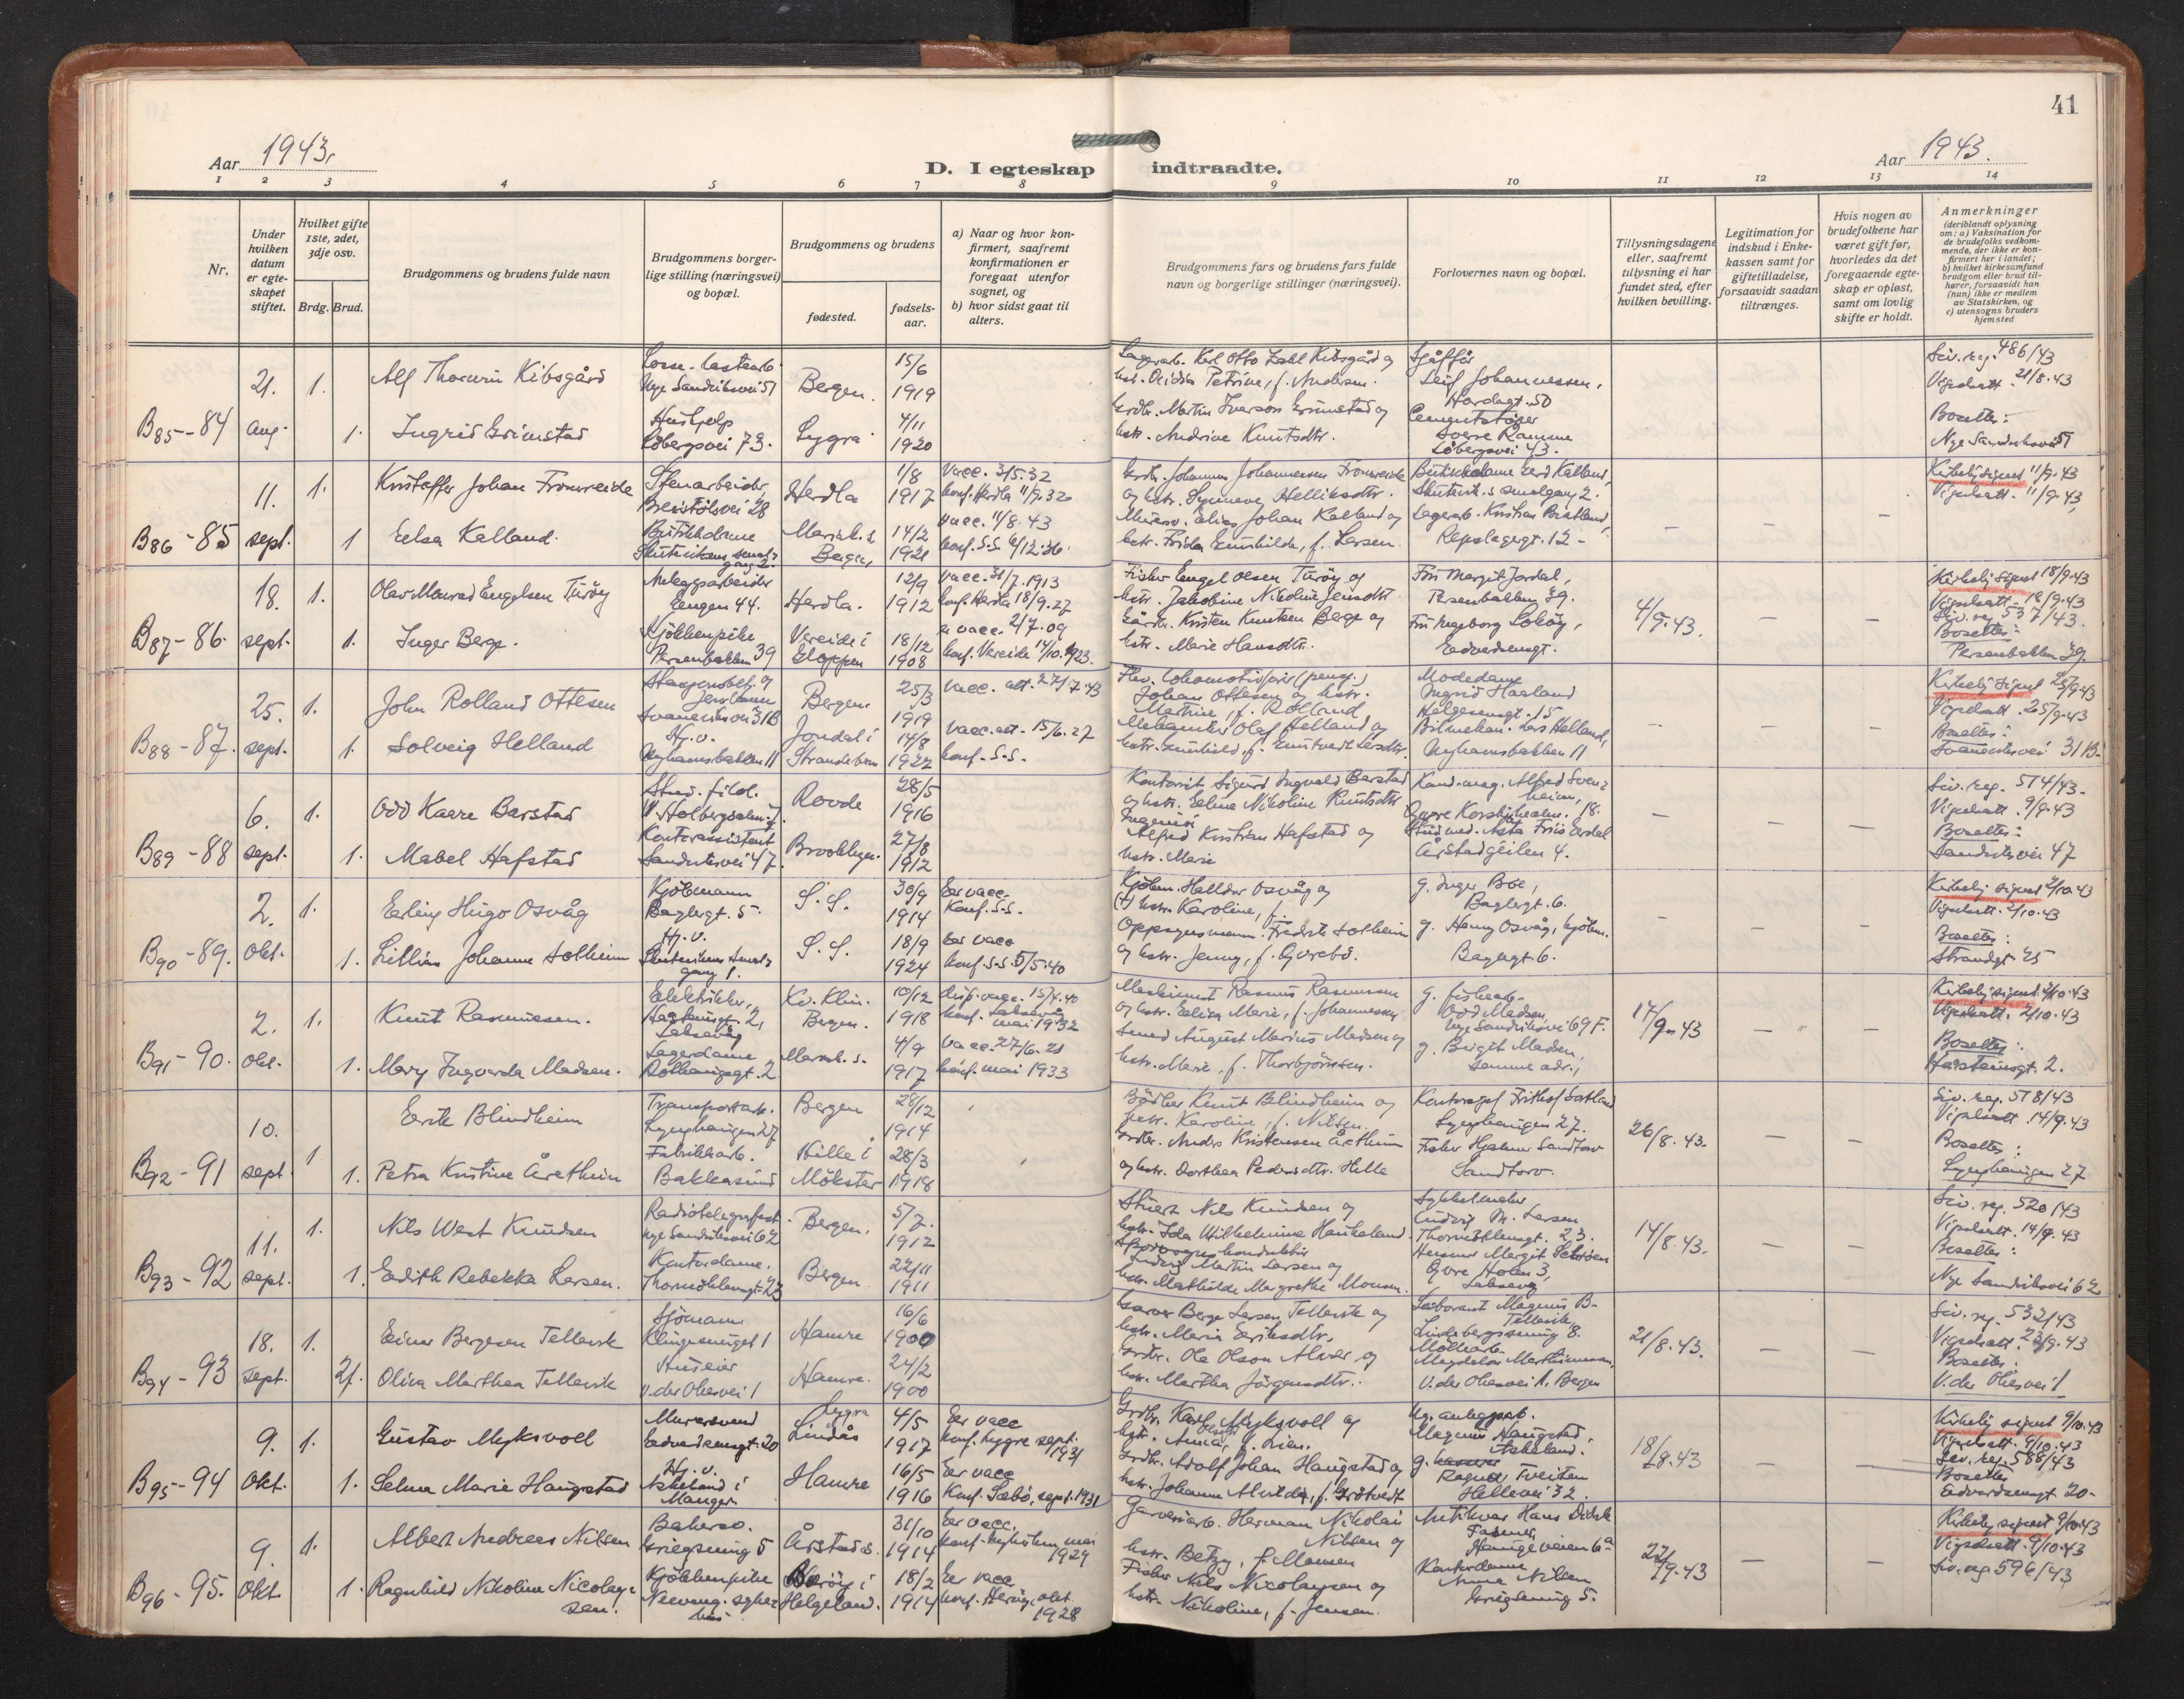 41
Aar 1943.
D. I egteskap indtraadte.
Aar 1943.
1 2 3 4 5 6 7 8 9 10 11 12 13 14
Nr.
Under hvilken datum er egte-skapet stiftet.
Hvilket gifte 1ste, 2det, 3dje osv.
Brdg. Brud.
Brudgommens og brudens fulde navn
Brudgommens borger-lige stilling (næringsvei) og bopæl.
Brudgommens og brudens
fødested.
fødsels-aar.
a) Naar og hvor kon-firmert, saafremt konfirmationen er foregaat utenfor sognet, og
b) hvor sidst gaat til alters.
Brudgommens fars og brudens fars fulde navn og borgerlige stillinger (næringsvei).
Forlovernes navn og bopæl.
Tillysningsdagene eller, saafremt tillysning ei har fundet sted, efter hvilken bevilling.
Legitimation for indskud i Enke-kassen samt for giftetilladelse, forsaavidt saadan tiltrænges.
Hvis nogen av brudefolkene har været gift før, hvorledes da det foregaaende egte-skap er opløst, samt om lovlig skifte er holdt.
Anmerkninger
(deriblandt oplysning om: a) Vaksination for de brudefolks vedkom-mende, der ikke er kon-firmert her i landet; b) hvilket kirkesamfund brudgom eller brud til-hører, forsaavidt han (hun) ikke er medlem av Statskirken, og c) utensogns bruders hjemsted
B85-84 21. aug. 1. Alf Thorwin Kibsgård Nye Sandviksvei 51 Bergen. 15/6 1919
1. Ingrid Grimstad Hushjelp Löbergsvei 73. Lygra 4/11 1920
Lagerarb. Karl Otto Kibsgård og
hstr. Petrine, f. Andersen.
Grdbr. Martin Iverson Grimstad og
hstr. Andrine Knutsdtr.
Sjåffør Leif Johannessen, Hardagt. 50
Sverre Ramme Löbergsvei 43.
Siv. reg. 486/43
Vigselsatt. 21/8.43
Bosettes:
Nye Sandviksvei 51
B86-85 11. sept. 1. Kristoffer Johan Fromreide Stenarbeider Breistölsvei 28 Herdla 1/8 1917 Vacc. 3/5.32 konf. Herdla 11/9.32
1 Elsa Kalland. Butikkdame Mariak. s. Bergen 14/2 1921 vacc. 11/8.43 konf. S.S. 6/12.36.
Grdbr. Johannes Johannessen Fromreide
og hstr. Synneve Helliksdtr.
Murersv. Elias Johan Kalland og
hstr. Frida Gunhilde, f. Larsen.
Butikkdame Gerd Kalland, Skutevik.s smalgang 2.
Lagerarb. Kristian Repslagergt. 12 -
Kirkelig signet 11/9.43
Vigselsatt. 11/9.43
B87-86. 18. sept. 1. Olav Monrad Engelsen Turöy Anleggsarbeider Engen 44. Herdla. 12/9 1912 vacc. 31/7.1913 konf. Herdla 18/9.27
1. Inger Berge. Kjökkenpike Persenbakken 39 Vereide i Gloppen 18/12 1908 vacc. 2/7.09 konf. Vereide 14/10.1923.
Fisker Engel Olsen Turöy og
hstr. Jakobine Nikoline Jensdtr.
Gårdbr. Kristen Knutsen Berge og
hstr. Marie Hansdtr.
Fru Margit Jordal, Persenbakken 39.
Fru Ingeborg Edvardsensgt.
4/9.43.
Kirkelig signet 18/9.43
Vigselsatt. 18/9.43
Siv. reg. 537/43.
Bosettes:
Persenbakken 39
B88-87. 25. sept. 1. John Rolland Ottesen Svaneviksvei 31B Bergen. 25/3 1919 vacc. att. 27/7.43
1. Solveig Helland Hj.v. Nyhavnsbakken 11 Jondal i Strandebarm 14/8 1922 vacc. att. 15/6.27 konf. S.S.
Fhv. lokomotivförer (pensj.)
Johan Ottesen og hstr.
Martine, f. Rolland
Mekaniker Olaf Helland og
Modedame Ingrid Haaland Helgesensgt. 15
Bilmekan. Lars Helland, Nyhavnsbakken 11
Kirkelig signet 25/9.43
Vigselsatt. 25/9.43
Bosettes:
Svaneviksvei 31B.
B89-88 6. sept. 1. Odd Kaare Barstad Stud. filol. V. Holbergsalm. 7. Rovde 28/5 1916
1. Mabel Hafstad Kontorassistent Sandviksvei 47. Brooklyn. 27/8 1912
Kontorist Sigurd Ingvald Barstad
og hstr. Eline Nikoline Knutsdtr
Ingeniör
Alfred Kristian Hafstad og
hstr. Marie
Kand. mag. Alfred Svenheim, Övre Korskirkealm. 18.
Stud. med. Asta Friis Årstadgeilen 4.
Siv. reg. 514/43.
Vigselsatt. 9/9.43
Bosettes:
Sandviksvei 47
B90-89. 2. okt. 1. Erling Hugo Osvåg Kjöbmann Baglergt. 5. S.S. 30/9 1914 Er vacc. Konf. S.S.
1. Lillian Johanne Solheim Hj.v. S.S. 18/9 1924 Er vacc konf. S.S. 5/5.40
Kjöbm. Halldor Osvåg og
hstr. Karoline, f.
Oppsynsmann Fredrik Solheim
og hstr. Jenny, f. Gjerebö.
g. Inger Boe, Baglergt. 6.
g. Henny Osvåg, kjöbm. Baglergt 6.
Kirkelig signet 2/10.43
Vigselsatt. 2/10.43
Bosettes:
Strandgt. 25
B91-90. 2. okt. 1. Knut Rasmussen. Elektriker, Laksevåg Kv. Klin. Bergen. 10/12 1918 15/4.40 konf. Laksevåg mai 1932
1. Mary Ingvarda Madsen. Lagerdame Mariak. s. 4/9 1917 vacc. 27/6.21 konf. mai 1933
Maskinist Rasmus Rasmussen
og hstr. Elina Marie, f. Johannessen
Smed August Marius Madsen og
hstr. Marie, f. Thorbjörnsen.
g. fiskearb. Odd Madsen, Nye Sandviksvei 69 F.
g. Birgit Madsen, samme adr.,
17/9.43
Kirkelig signet 2/10.43
Vigselsatt. 2/10.43
Bosettes:
Halsteinsgt. 2.
B92-91 10. sept 1 Eirik Blindheim Transportarb. Lynghaugen 27 Bergen 28/12 1914
1. Petra Kristine Åretheim Fabrikkarb. Bakkasund Hille i Mökster 28/3 1918
Bödker Knut Blindheim og
hstr. Karoline, f. Nilsen.
Grdbr. Anders Kristensen Åretheim
og hstr. Dorthea Pedersdtr. Hille
Lynghaugen 27.
Fisker Hjalmar Sandtorv Sandtorv.
26/8.43.
Siv. reg. 518/43
Vigselsatt. 14/9.43
Bosettes:
Lynghaugen 27
B93-92 11. sept. 1. Nils West Knudsen Radiotelegrafist Nye Sandviksvei 62 Bergen. 5/7. 1912
1. Edith Rebekka Larsen. Kontordame. Thormöhlensgt. 23 Bergen 22/11 1911
Stuert Nils Knudsen og
hstr. Ida Wilhelmine Haukeland.
Sporvognskonduktör
Ludvig Martin Larsen og
hstr. Mathilde Margrethe Monsen.
Ludvig M. Larsen Thormöhlensgt. 23.
Margit Övre Holen 3, Laksevåg
14/8.43.
Siv. reg. 520/43
Vigselsatt. 14/9.43
Bosettes:
Nye Sandviksvei 62
B94-93 18. sept. 1. Einar Bergesen Tellevik Sjömann Klingesmuget 1 Hamre 16/6 1900
2f. Oliva Marthea Tellevik Huseier V. der Ohesvei 1 Hamre. 24/2 1900
Garver Berge Larsen Tellevik og
hstr. Marie Eriksdtr.
Grdbr. Ole Olson Alver og
hstr. Martha Jörgensdtr.
Laborant Magnus B. Tellevik, 8.
V. der Ohesvei 1. Bergen
21/8.43.
Siv. reg. 532/43
Vigselsatt. 23/9.43
Bosettes:
V. der Ohesvei 1
B95-94 9. okt. 1. Gustav Myksvoll Murersvend Edvardsensgt. 20 Lygra Lindås 4/5 1917 Er vacc konf. Lygra sept. 1931
1. Selma Marie Haugstad Hj.v. Askeland i Manger Hamre 16/5 1916 Er vacc Konf. Sæbö, sept. 1931
Grdbr. Karl Myksvoll og
hstr. Anna, f. Lien.
Grdbr. Adolf Johan Haugstad og
hstr. Johanne Alvilde, f. Grötvedt
Magnus Haugstad, Askeland.
g. Ragna Tveiten Hellevei 32.
18/9.43
Kirkelig signet 9/10.43
Vigselsatt. 9/10.43
Siv. reg. 588/43
Bosettes
Edvardsensgt 20.
B96-95. 9. okt. 1. Albert Andreas Nilsen Bakersv. Griegsmug 5 Årstad s. 31/10 1914 Er vacc. mai 1929
1. Ragnhild Nikoline Nicolaysen. Kjökkenpike Neeveng. sykehus Herøy i Helgeland. 18/2 1914 Er vacc konf. Heröy, okt. 1928
Garveriarb. Herman Nikolai Nilsen og
hstr. Betzy, f. Monsen
Fisker Nils Nicolaysen og
hstr. Nikoline, f. Jensen.
Antikvar Hans Didrik Fasmer, Haugeveien 6a
Kontordame Anna Nilsen Griegsmug 5.
22/9.43
Kirkelig signet 9/10.43
Vigselsatt. 9/10.43
Siv. reg. 596/43